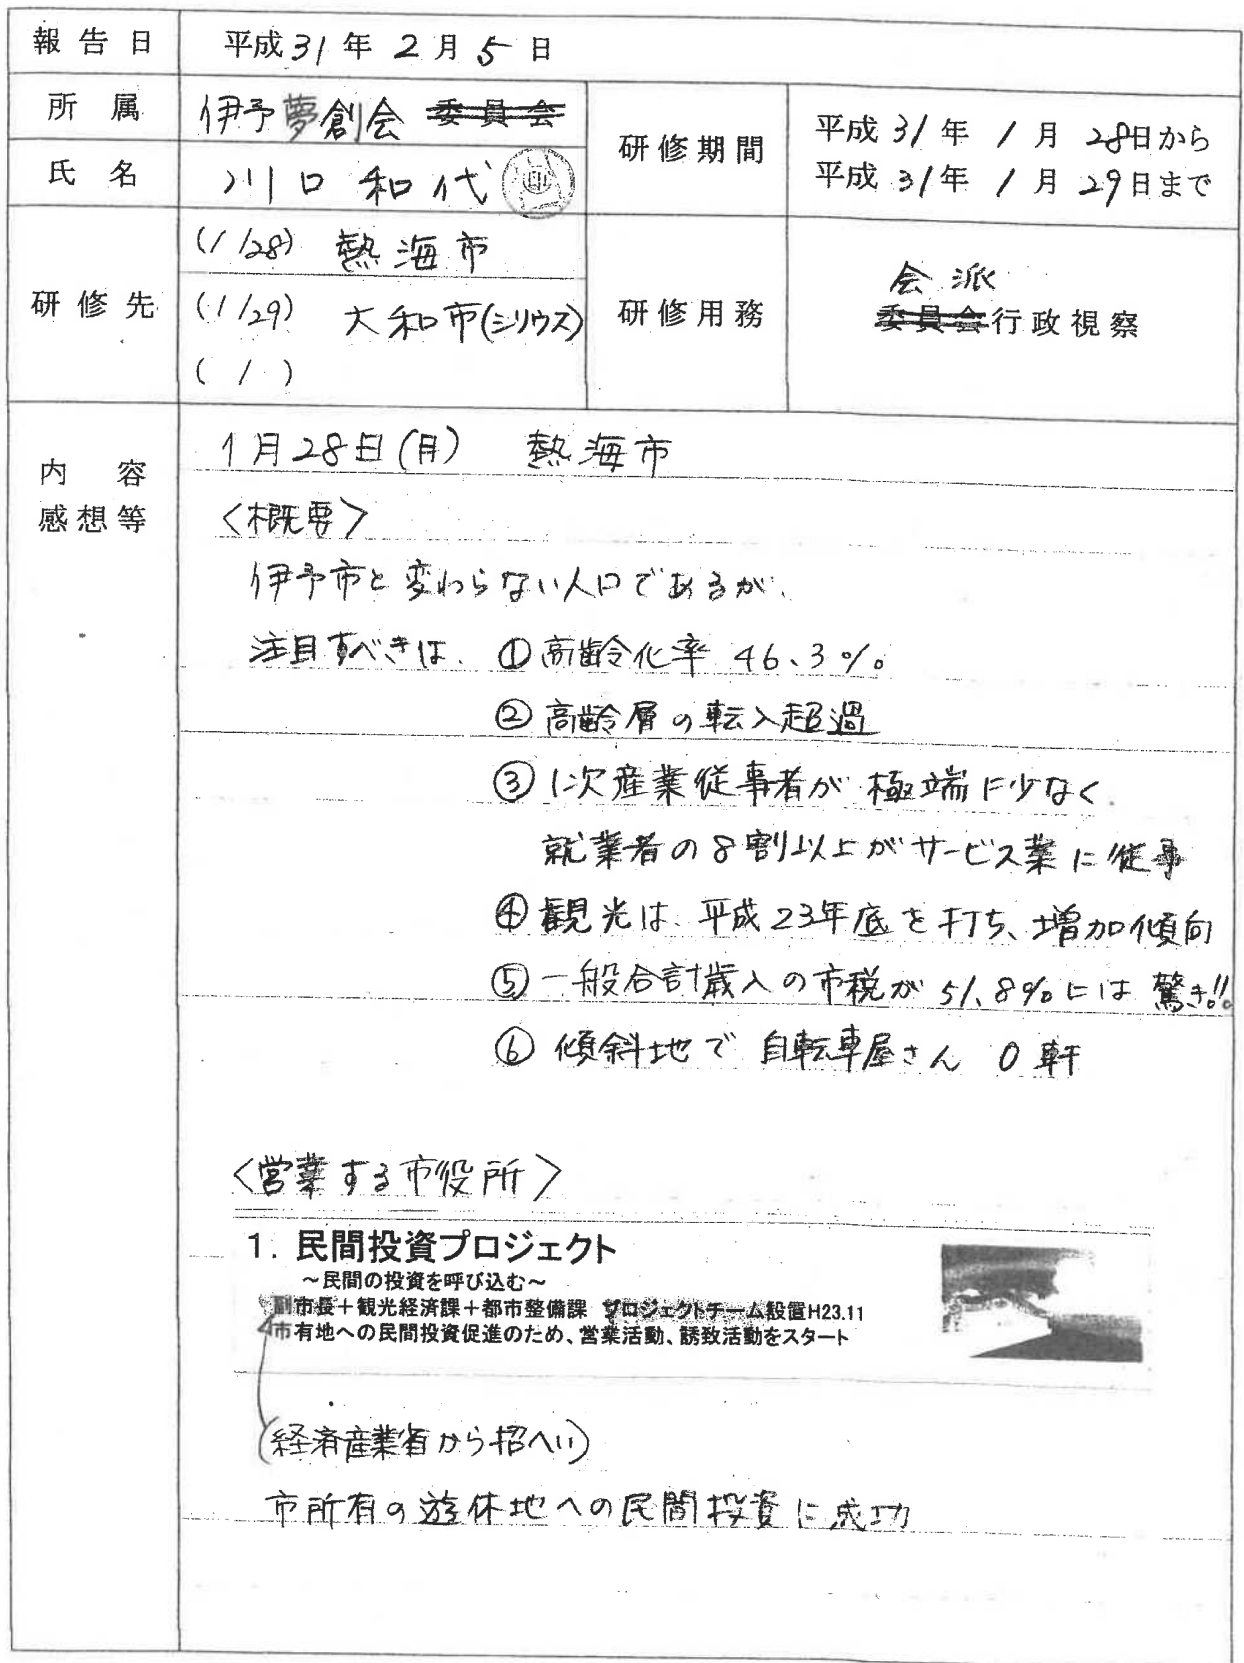 報告日 平成31年2月5日
所属 伊予夢創会 委員会
氏名 川口和代
研修期間 平成31年1月28日から
平成31年1月29日まで
研修先 (1/28) 熱海市
(1/29) 大和市(シリウス)
( / )
研修用務 会派
委員会行政視察
内容
感想等
1月28日(月) 熱海市
〈概要〉
伊予市と変わらない人口であるが、
注目すべきは、①高齢化率 46.3%。
②高齢層の転入超過
③1次産業従事者が極端に少なく
就業者の8割以上がサービス業に従事
④観光は、平成23年底を打ち、増加傾向
⑤一般会計歳入の市税が51.8%には驚き!!
⑥傾斜地で自転車屋さん0軒
〈営業する市役所〉
1. 民間投資プロジェクト
～民間の投資を呼び込む～
副市長＋観光経済課＋都市整備課 プロジェクトチーム設置H23.11
市有地への民間投資促進のため、営業活動、誘致活動をスタート
(経済産業省から招へい)
市所有の遊休地への民間投資に成功